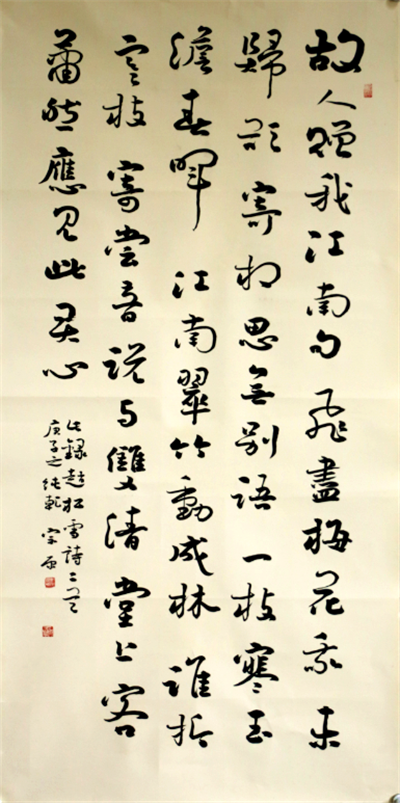 故人贈我江南句飛盡梅花我未
歸欲寄相思無別語一枝寒玉
澹春暉江南翠竹動成林誰折
枝寄賞音說與雙清堂上客
蕭然應見此君心
此錄趙松雪詩二首
庚子之純乾宗原